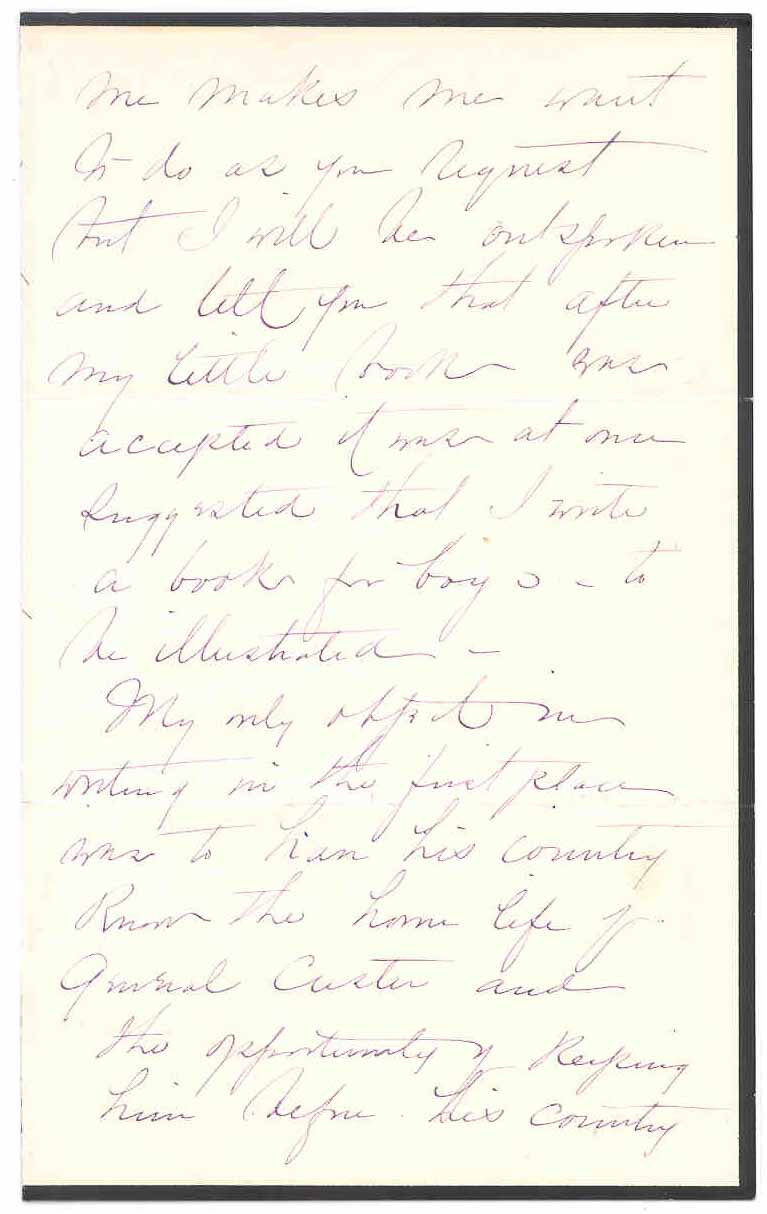 me makes me want
to do as you request
but I will be outspoken
and tell you that after
my little book was
accepted it was at once
suggested that I write
a book for boys - to
be illustrated -
My only object in
writing in the first place
was to have his country
know the home life of
General Custer and
the opportunity of keeping
him before his country